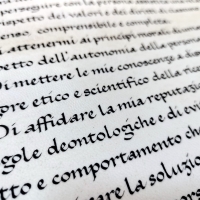 perseguire con la persona assistita
rispetto dei valori e dei diritti
enso comprensibile e completa.
attenermi ai principi morali di
petto dell'autonomia della perso
Di mettere le mie conoscenze a
pre etico e scientifico della ric
Di affidare la mia reputazio
gole deontologiche e di evi
tto e comportamento che
are la soluzio